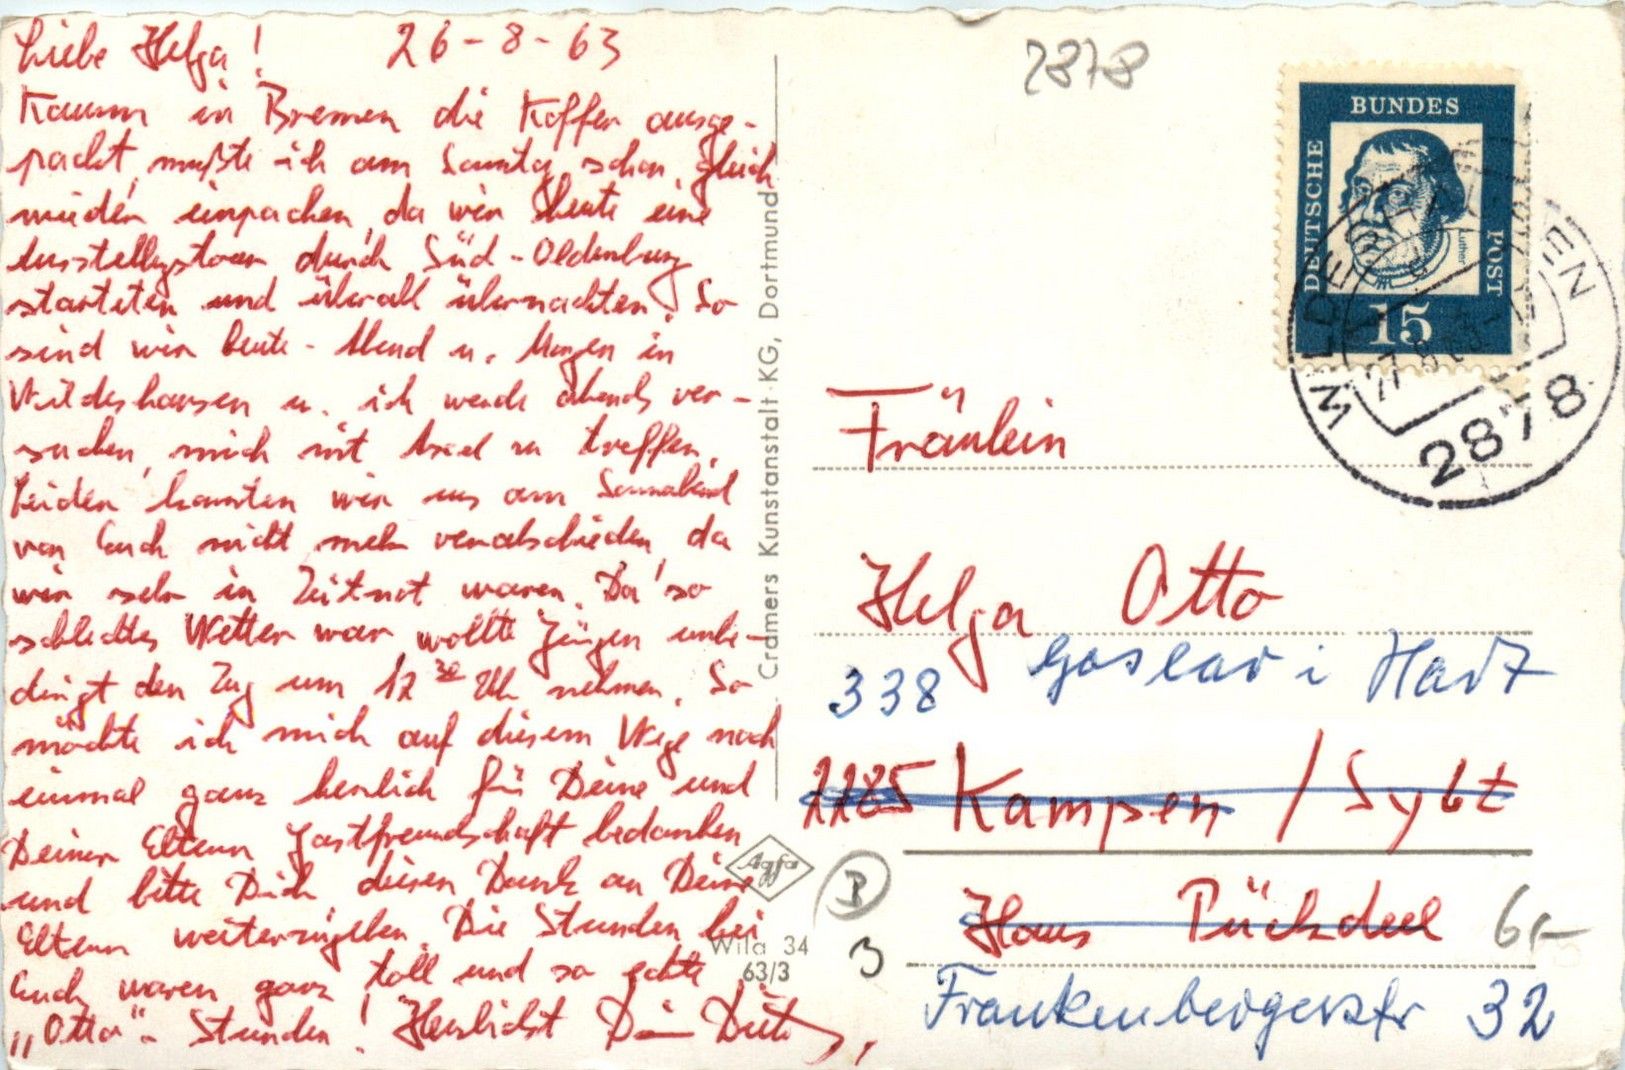 Liebe Helga! 26-8-63
Kaum in Bremen die Koffer ausge-
packt, mußte ich am Sonntag schon gleich
wieder einpacken, da wir heute eine
Ausstellgstour durch Süd-Oldenburg
starteten und überall übernachten. So
sind wir heute-Abend u. Morgen in
Wildeshausen u. ich werde abends ver-
suchen, mich mit Axel zu treffen.
Leider konnten wir uns am Sonnabend
von Euch nicht mehr verabschieden, da
wir sehr in Zeitnot waren. Da so
schlechtes Wetter war wollte Jürgen unbe-
dingt den Zug um 12 30 Uhr nehmen. So
möchte ich mich auf diesem Wege noch
einmal ganz herzlich für Deine und
Deiner Eltern Gastfreundschaft bedanken
und bitte Dich, diesen Dank an Deine
Eltern weiterzugeben. Die Stunden bei
Euch waren ganz toll und so echte
"Otto"- Stunden! Herzlichst Dein
Cramers Kunstanstalt KG, Dortmund
Agfa
Wila 34
63/3
2878
DEUTSCHE BUNDES POST
Luther
15
WILDESHAUSEN
27.8.63
2878
Fräulein
Helga Otto
338 Goslar i Harz
2285 Kampen / Sylt
Haus Pückdeel
6,-
B
3
Frankenbergerstr 32